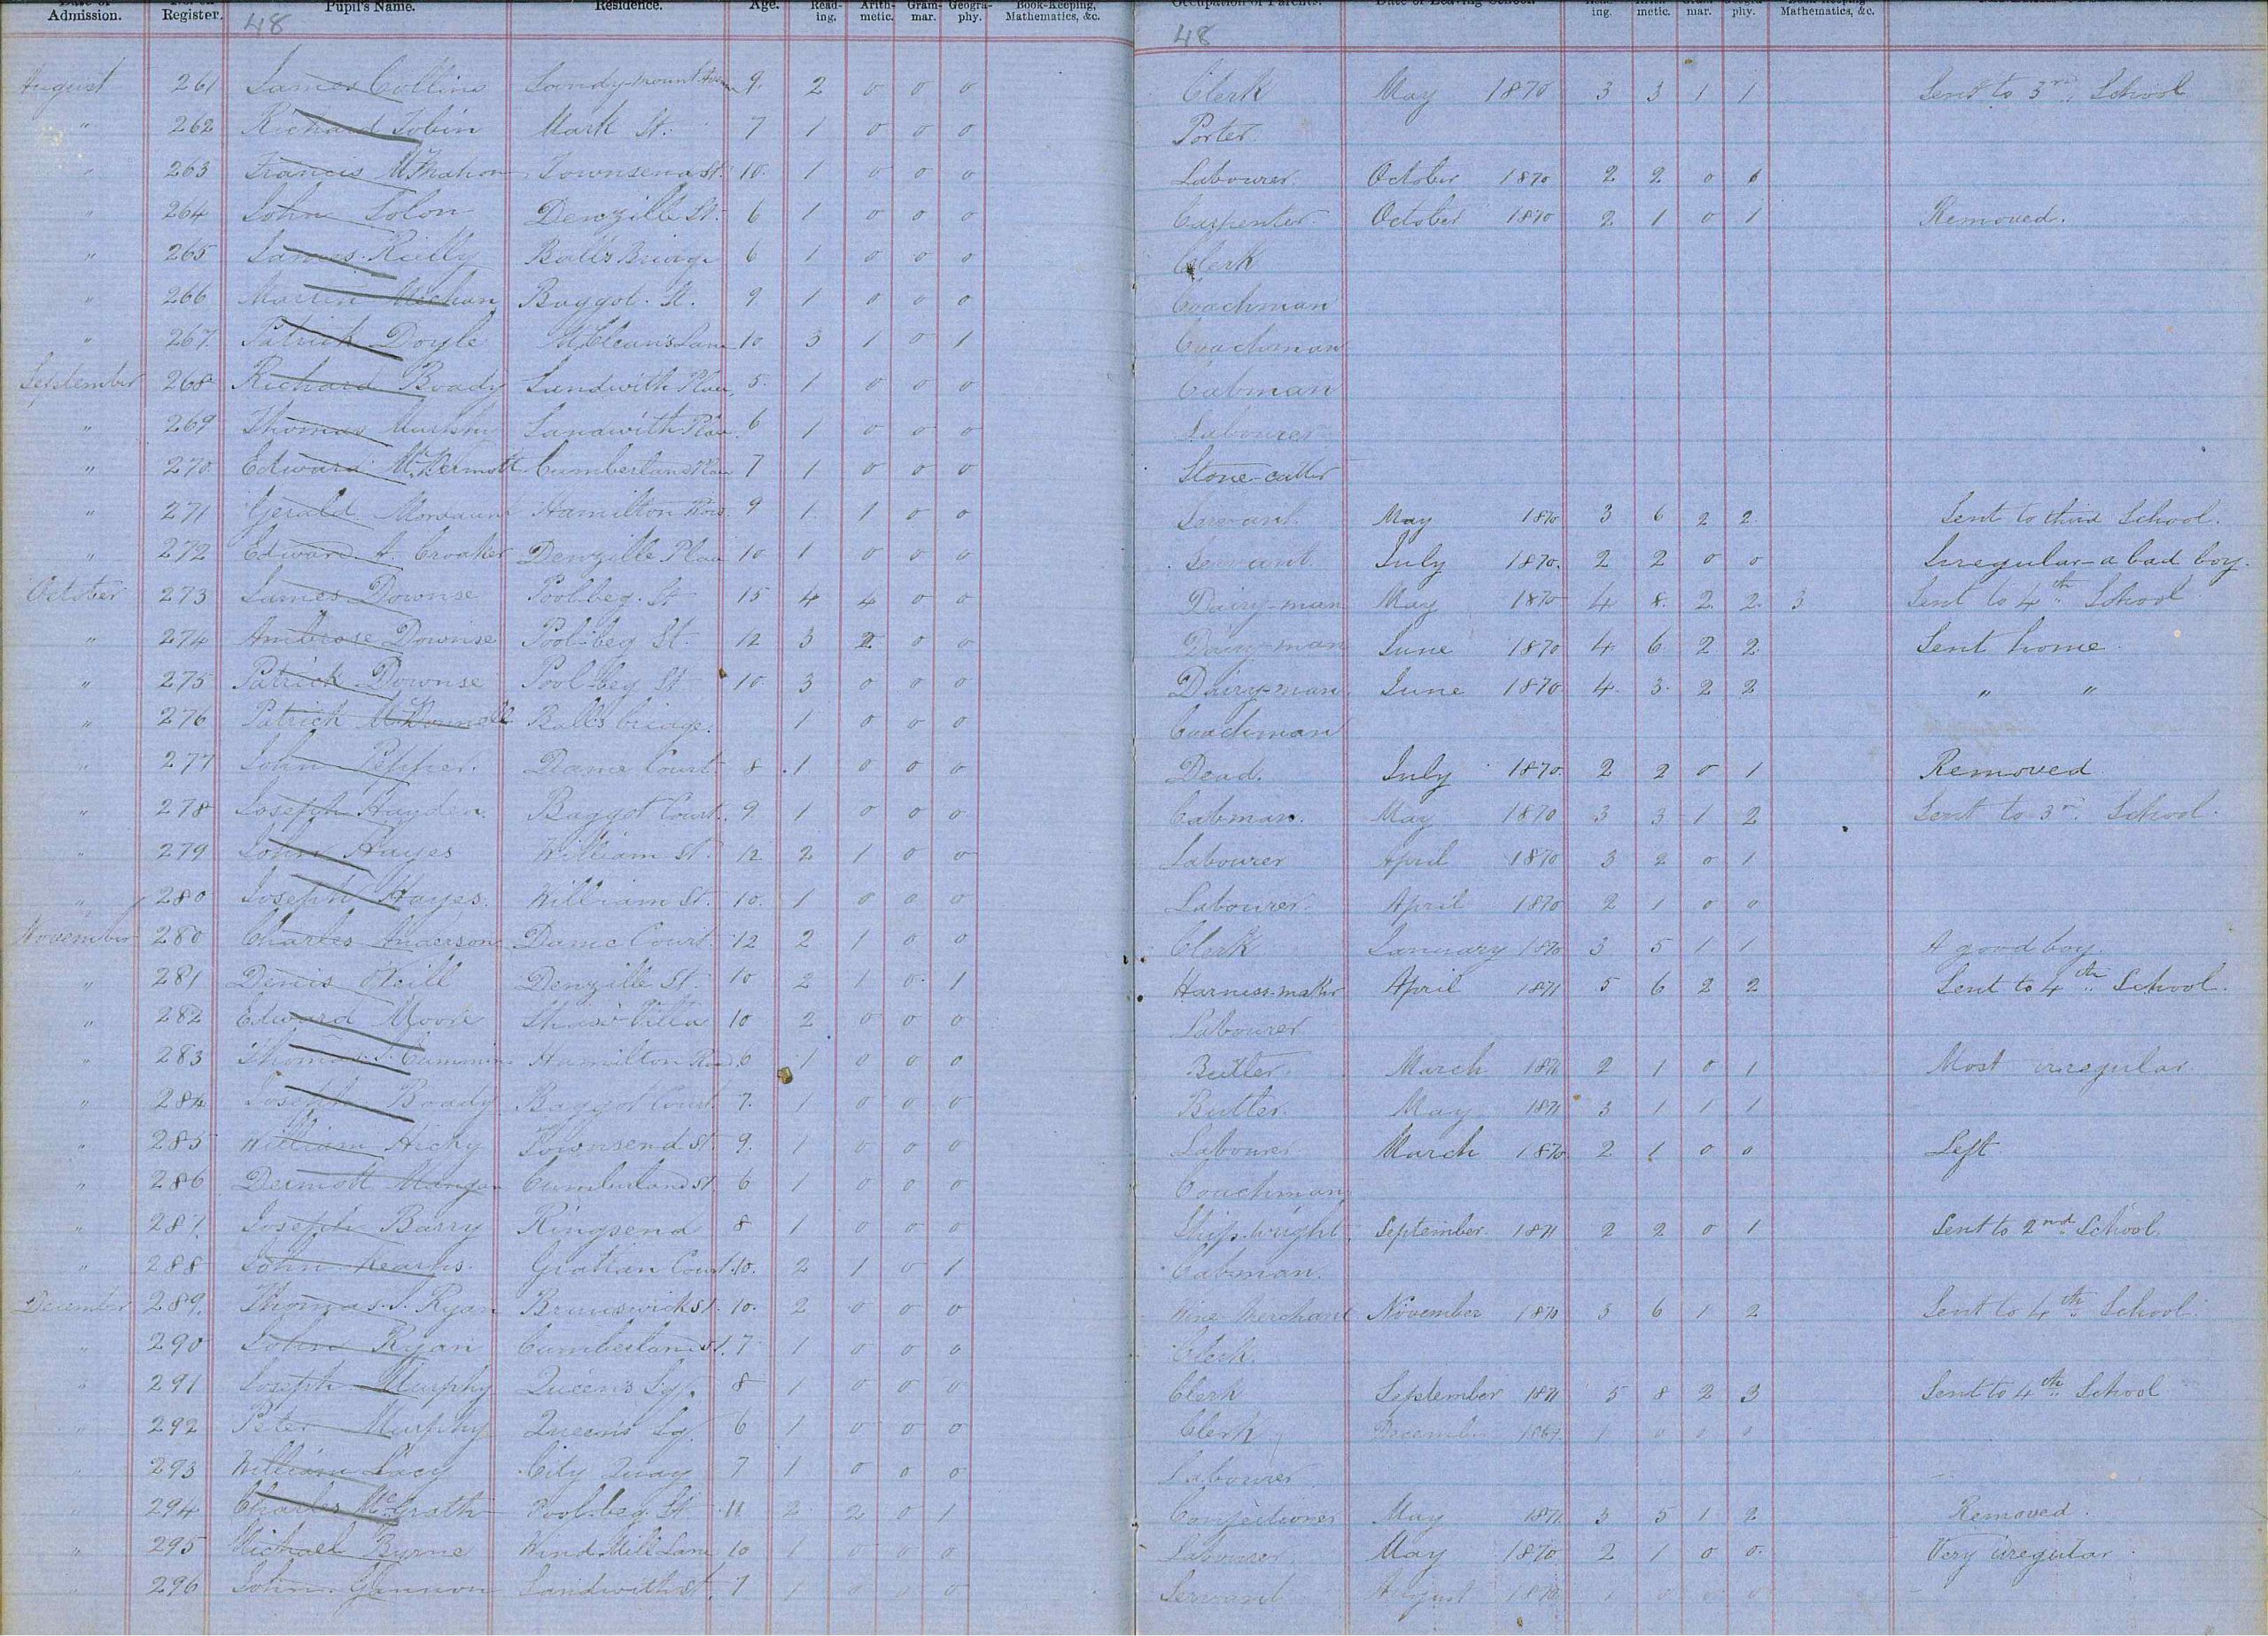 Admission. Register. Pupil's Name. Residence. Age. Read-ing. Arith-metic. Gram-mar. Geogra-phy. Book-Keeping, Mathematics, &c. Occupation of Parents. Date of Leaving School ing. metic. mar. phy. Mathematics, &c.
48 48
August 261 James Collins Sandymount Aven 9. 2 0 0 0 Clerk May 1870 3 3 1 1 Sent to 3rd School
" 262 Richard Tobin Mark St. 7 1 0 0 0 Porter
" 263 Francis McMahon Townsend St. 10. 1 0 0 0 Labourer. October 1870 2 2 0 1
" 264 John Solon Denzille St. 6 1 0 0 0 Carpenter. October 1870 2 1 0 1 Removed.
" 265 James Reilly Balls Bridge 6 1 0 0 0 Clerk
" 266 Martin Meehan Baggot St. 9. 1 0 0 0 Coachman
" 267 Patrick Doyle McCleans Lane 10 3 1 0 1 Coachman
September 268 Richard Boady Sandwith Place 5. 1 0 0 0 Cabman
" 269 Thomas Murphy Sandwith Place 6 1 0 0 0 Labourer
" 270 Edward McDermott Cumberland Place 7 1 0 0 0 Stone-cutter
" 271 Gerald Hamilton Row. 9 1 1 0 0 Servant May 1870 3 6 2 2 Sent to third School.
" 272 Edward A. Croaker Denzille Place 10 1 0 0 0 Servant July 1870. 2 2 0 0 Irregular - a bad boy.
October 273 James Downse Poolbeg. St 15 4 4 0 0 Dairy-man May 1870 4 8. 2 2. 3 Sent to 4th School
" 274 Ambrose Downse Pool-beg St 12 3 2 0 0 Dairy-man June 1870 4 6 2 2 Sent home.
" 275 Patrick Downse Pool-beg St 10. 3 0 0 0 Dairy-man. June 1870 4. 3. 2 2 " "
" 276 Patrick McDonnell Balls bridge. 1 0 0 0 Coachman
" 277 John Pepper. Dame Court. 8 1 0 0 0 Dead. July 1870. 2 2 0 1 Removed
" 278 Joseph Hayden. Baggot Court. 9 1 0 0 0 Cabman. May 1870 3 3 1 2 Sent to 3rd School.
" 279 John Hayes William St. 12 2 1 0 0 Labourer April 1870 3 2 0 1
" 280 Joseph Hayes. William St. 10. 1 0 0 0 Labourer. April 1870 2 1 0 0
November 280 Charles Anderson Dame Court. 12 2 1 0 0 Clerk January 1870 3 5 1 1 A good boy.
" 281 Denis O'Neill Denzille St. 10 2 1 0 1 Harness-maker April 1871 5 6 2 2 Sent to 4th School.
" 282 Edward Moore Shaw's Villa 10 2 0 0 0 Labourer
" 283 Thomas J. Cummins Hamilton Row. 6 1 0 0 0 Butler. March 2 1 0 1 Most irregular
" 284 Joseph Boady. Baggot Court. 7. 1 0 0 0 Butler. May 1871 3 1 1 1
" 285 William Hicky Townsend St. 9. 1 0 0 0 Labourer March 1870. 2 1 0 0 Left
" 286 Dermott Mangan Cumberland St. 6 1 0 0 0 Coachman
" 287. Joseph Barry Ringsend 8 1 0 0 0 Ship-wright. September. 1871 2 2 0 1 Sent to 2nd School.
" 288 John Kearns. Grattan Court. 10. 2 1 0 1 Cabman.
December 289. Thomas. J. Ryan Brunswick St. 10. 2 0 0 0 Wine Merchant November 3 6 1 2 Sent to 4th School.
" 290 John Ryan Cumberland St. 7 1 0 0 0 Clerk.
" 291 Joseph Murphy Queen's Sq. 8 1 0 0 0 Clerk September 1871 5 8 2 3 Sent to 4th School
" 292 Peter Murphy Queen's Sq. 6 1 0 0 0 Clerk December 1869. 1 0 0 0
" 293 William Lacy City Quay 7 1 0 0 0 Labourer
" 294 Charles McGrath Pool-beg St. 11 2 2 0 1 Confectioner May 1871. 3 5 1 2 Removed.
" 295 Michael Byrne Wind Mill Lane 10 1 0 0 0 Labourer. May 1870 2 1 0 0. Very irregular.
" 296 John Glennon Sandwith St. 7 1 0 0 0 Servant August 1870 1 0 0 0